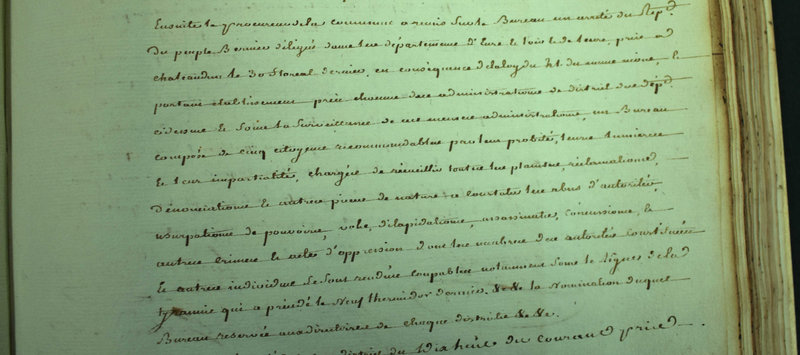 Ensuite le procureur de la commune a remis sur le Bureau un arrêté du Rep.
Du peuple Bernier délégué dans les départements d'Eure et Loir et de leure, pris a
chateaudun le 30 floreal dernier, en conséquence de la loy du 21 du meme mois,
portant etablissement près chacune des administrations de district du dép.
cidessus et sous la surveillance de ces memes administrations, un Bureau
composé de cinq citoyens recommandables par leur probité, leurs lumieres
Et leur impartialité, chargés de recueillir toutes les plaintes, réclamations,
Dénonciations et autres pieces de nature a constater les abus d'autorités,
usurpations de pouvoirs, vols, dilapidations, assassinats, concussions, et
autres crimes et actes d'oppression dont les membres des autorités constituées
Et autres individus se sont rendus coupables notamment sous le regne de la
tyrannie qui a précédé le Neuf thermidor dernier. &c &c la Nomination duquel
Bureau reservée aux directoires de chaque districts &c &c.
district du dix huit du courant pris